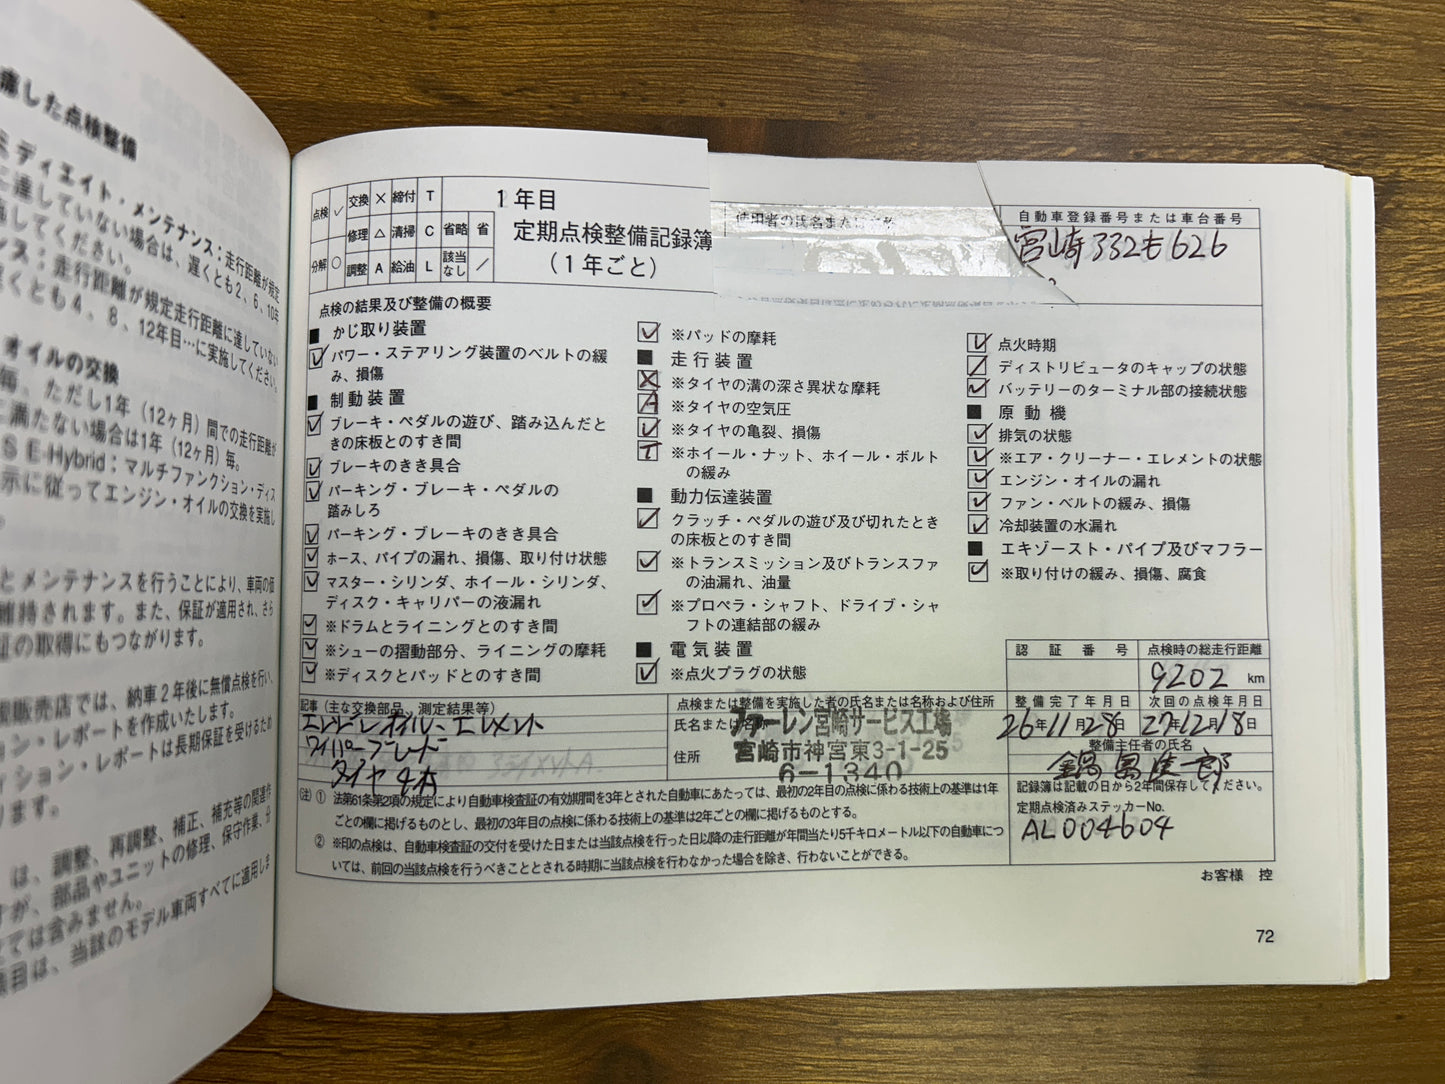 慮した点検整備
ミディエイト・メンテナンス：走行距離が規定
に達していない場合は、遅くとも2、6、10年
施してください。
ンス：走行距離が規定走行距離に達していない
くとも4、8、12年目…に実施してください。
オイルの交換
毎。ただし1年（12ヶ月）間での走行距離が
に満たない場合は1年（12ヶ月）毎。
S E-Hybrid：マルチファンクション・ディス
示に従ってエンジン・オイルの交換を実施し
とメンテナンスを行うことにより、車両の価
維持されます。また、保証が適用され、さら
証の取得にもつながります。
販売店では、納車2年後に無償点検を行い、
ョン・レポートを作成いたします。
ィション・レポートは長期保証を受けるため
ります。
は、調整、再調整、補正、補充等の関連作
すが、部品やユニットの修理、保守作業、分
ては含みません。
項目は、当該のモデル車両すべてに適用しま
点検 ✓ 交換 × 締付 T
修理 △ 清掃 C 省略 省
分解 ○ 調整 A 給油 L 該当なし ／
1年目
定期点検整備記録簿
（1年ごと）
使用者の氏名または
自動車登録番号または車台番号
宮崎332も626
点検の結果及び整備の概要
■ かじ取り装置
✓ パワー・ステアリング装置のベルトの緩
み、損傷
■ 制動装置
✓ ブレーキ・ペダルの遊び、踏み込んだと
きの床板とのすき間
✓ ブレーキのきき具合
✓ パーキング・ブレーキ・ペダルの
踏みしろ
✓ パーキング・ブレーキのきき具合
✓ ホース、パイプの漏れ、損傷、取り付け状態
✓ マスター・シリンダ、ホイール・シリンダ、
ディスク・キャリパーの液漏れ
✓ ※ドラムとライニングとのすき間
✓ ※シューの摺動部分、ライニングの摩耗
✓ ※ディスクとパッドとのすき間
✓ ※パッドの摩耗
■ 走行装置
× ※タイヤの溝の深さ異状な摩耗
A ※タイヤの空気圧
✓ ※タイヤの亀裂、損傷
T ※ホイール・ナット、ホイール・ボルト
の緩み
■ 動力伝達装置
／ クラッチ・ペダルの遊び及び切れたとき
の床板とのすき間
✓ ※トランスミッション及びトランスファ
の油漏れ、油量
✓ ※プロペラ・シャフト、ドライブ・シャ
フトの連結部の緩み
■ 電気装置
✓ ※点火プラグの状態
✓ 点火時期
／ ディストリビュータのキャップの状態
✓ バッテリーのターミナル部の接続状態
■ 原動機
✓ 排気の状態
✓ ※エア・クリーナー・エレメントの状態
✓ エンジン・オイルの漏れ
✓ ファン・ベルトの緩み、損傷
✓ 冷却装置の水漏れ
■ エキゾースト・パイプ及びマフラー
✓ ※取り付けの緩み、損傷、腐食
認証番号 点検時の総走行距離
9202 km
記事（主な交換部品、測定結果等）
エンジンオイル・エレメント
ワイパーブレード
タイヤ4本
点検または整備を実施した者の氏名または名称および住所
氏名または名称 ファーレン宮崎サービス工場
住所 宮崎市神宮東3-1-25
6-1340
整備完了年月日 次回の点検年月日
26年11月28日 27年12月18日
整備主任者の氏名
記録簿は記載の日から2年間保存してください。
定期点検済みステッカーNo.
AL004604
（注）① 法第61条第2項の規定により自動車検査証の有効期間を3年とされた自動車にあたっては、最初の2年目の点検に係わる技術上の基準は1年
ごとの欄に掲げるものとし、最初の3年目の点検に係わる技術上の基準は2年ごとの欄に掲げるものとする。
② ※印の点検は、自動車検査証の交付を受けた日または当該点検を行った日以降の走行距離が年間当たり5千キロメートル以下の自動車につ
いては、前回の当該点検を行うべきこととされる時期に当該点検を行わなかった場合を除き、行わないことができる。
お客様 控
72